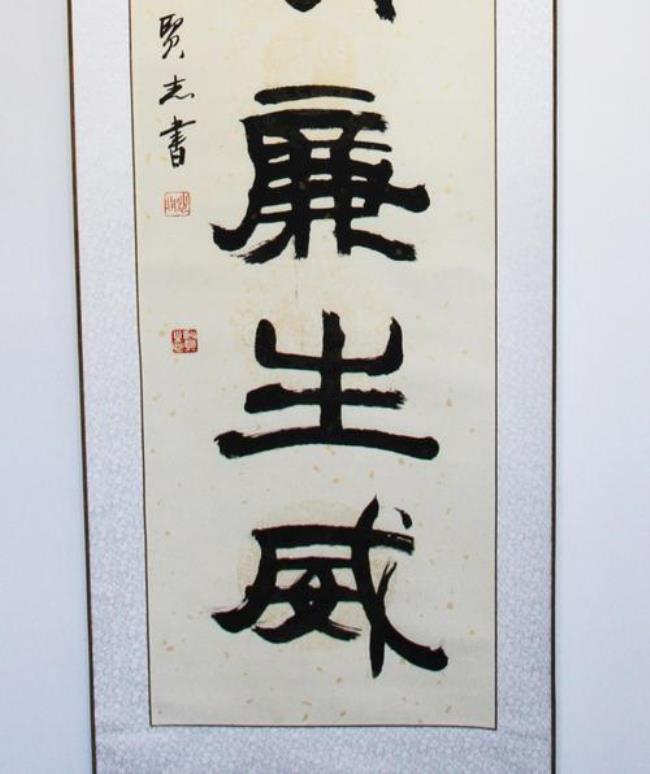 廉生威
贤志書